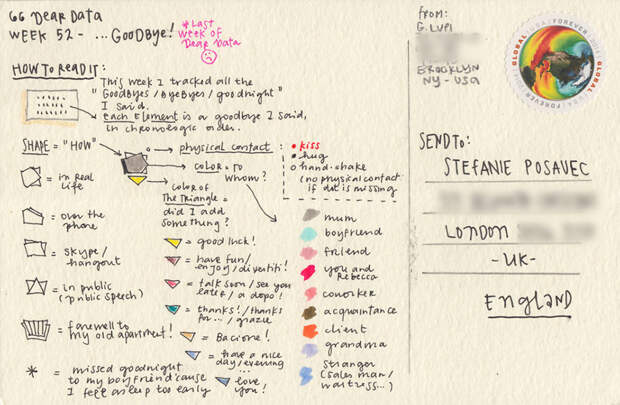 66 DEAR DATA
WEEK 52 - ... GOODBYE!
* LAST
WEEK OF
DEAR DATA
HOW TO READ IT:
This week I tracked all the
"GOODBYES / BYEBYES / goodnight"
I said.
each element is a goodbye I said,
in chronologic order.
SHAPE = "HOW"
= in real
life
= over the
phone
= skype /
hangout
= in public
(public speech)
= farewell to
my old apartment!
* = missed goodnight
to my boyfriend 'cause
I fell asleep too early
physical contact:
• kiss
• hug
○ hand-shake
(no physical contact
if dot is missing
COLOR = to
whom?
color of
The Triangle =
did I add
something?
= good luck!
= have fun /
enjoy / divertiti!
= talk soon / see you
later / a dopo!
= thanks! / thanks
for... / grazie
= Bacione!
= have a nice
day / evening...
= love
you!
mum
boyfriend
friend
you and
Rebecca
coworker
acquaintance
client
grandma
stranger
(sales man /
waitress...)
FROM:
G. LUPI
BROOKLYN
NY - USA
GLOBAL
FOREVER
USA
GLOBAL
SEND TO:
STEFANIE POSAVEC
LONDON
- UK -
ENGLAND